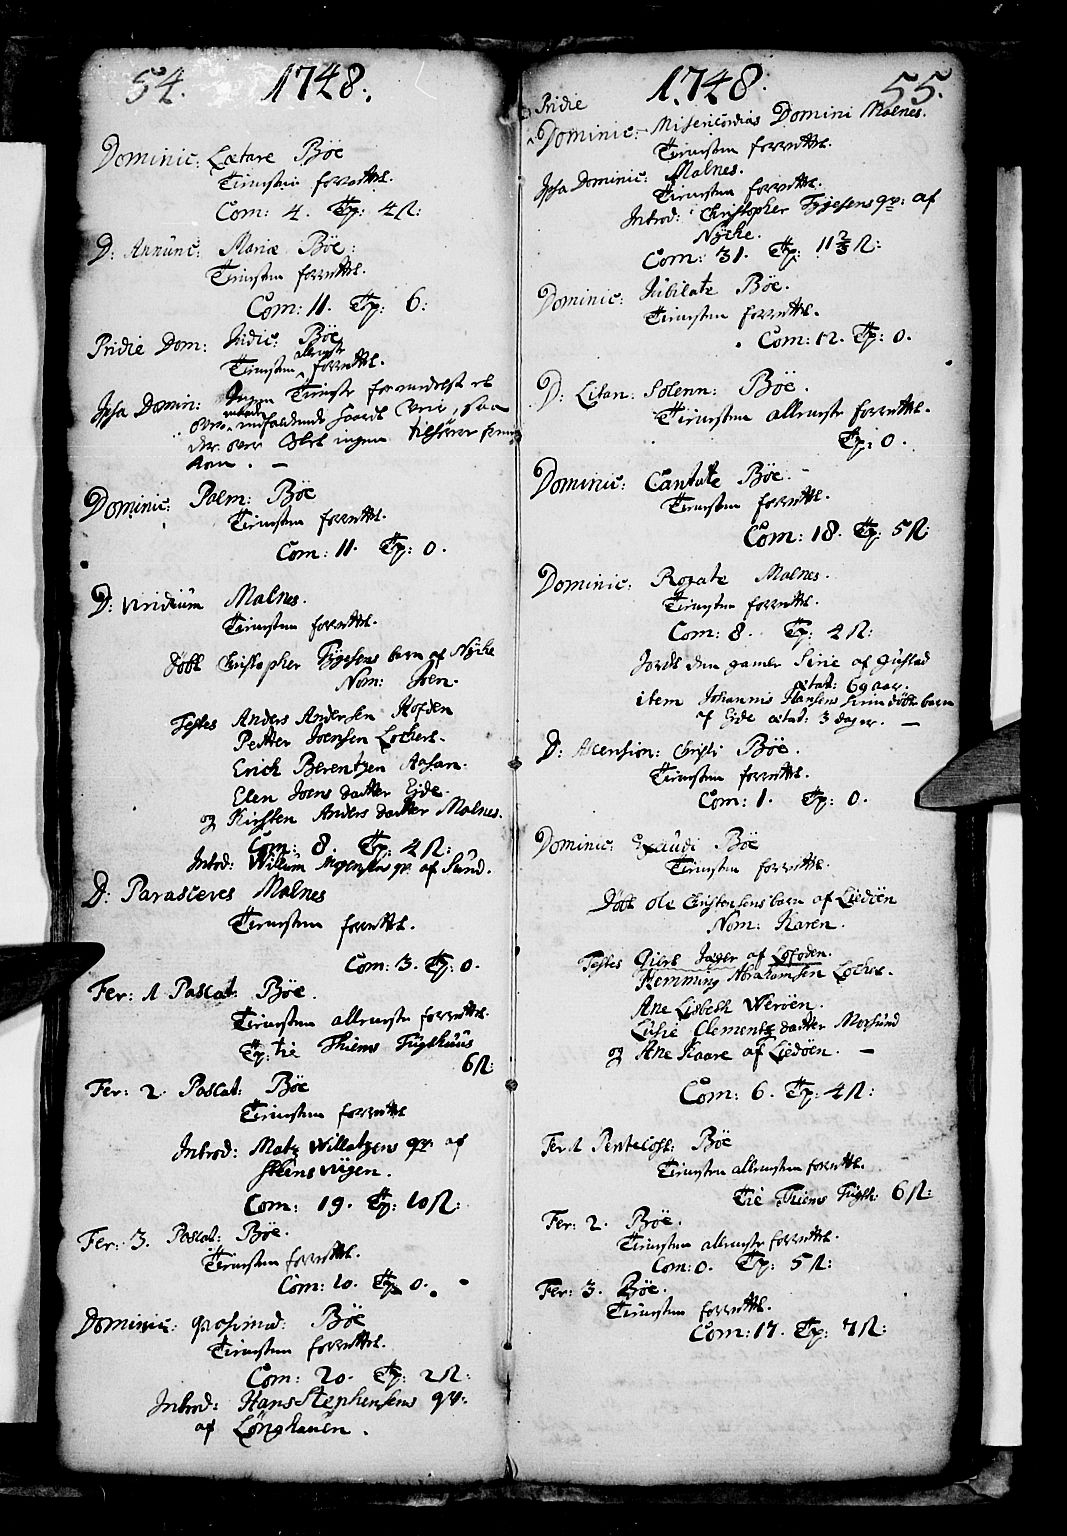 54. 1748.
Dominic: Lætare Bøe
Tienesten forrettet.
Com: 4. Tp: 4 ß:
D: Annunc: Mariæ Bøe:
Tienesten forrettet.
Com: 11. Tp: 6:
Pridie Dom: Judic: Bøe
alleneste
Tienesten forrettet.
Ipsa Domin: Ingen Tieneste formedelst et
over indfaldende haardt Veir, saa
der over blet ingen tilhører frem
kom. —
Dominic: Palm: Bøe
Tienesten forrettet.
Com: 11. Tp: 0.
D: Viridium Malnes.
Tienesten forrettet.
Døbt Christopher Tygesens barn af Nÿcke
Nom: Joen.
Testes Anders Andersen Hofden
Petter Joensen Lockert.
Erich Berentzen Aasan.
Elen Joens datter Eide.
og Kirsten Anders datter Malnes.
Com: 8. Tp: 4 ß:
Introd: Willum Mogensens qv. af Sund.
D: Parasceves Malnes
Tienesten forrettet.
Com: 3. Tp: 0.
Fer: 1 Pascat: Bøe.
Tienesten alleneste forrettet.
Tp: tie Thiems Fuglhuus
6 ß:
Fer: 2. Pascat: Bøe
Tienesten forrettet
Introd: Matz Willatzens qv: af
Steensvigen.
Com: 19. Tp: 10 ß:
Fer: 3. Pascat: Bøe.
Tienesten forrettet.
Com: 10. Tp: 0.
Dominic: qvasimod: Bøe
Tienesten forrettet.
Com: 20. Tp: 2 ß:
Introd: Hans Stephensens qv:
af Lønghauen.
1748. 55.
Pridie
Dominic: Misericordias Domini Malnes.
Tienesten forrettet.
Ipsa Dominic: Malnes.
Tienesten forrettet.
Introd: Christopher Tygesens qv: af
Nÿcke.
Com: 31. Tp: 11 2/3 ß:
Dominic: Jubilate Bøe.
Tienesten forrettet.
Com: 12. Tp: 0.
D: Litan: Solenn: Bøe.
Tienesten alleneste forrettet.
Tp: 0.
Dominic: Cantate Bøe.
Tienesten forrettet.
Com: 18. Tp: 5 ß:
Dominic: Rogate Malnes.
Tienesten forrettet.
Com: 8. Tp: 4 ß:
Jordet den gamle Sirie af Gustad
ætat: 69 aar.
item Johannis Hansens hiemdøbte barn
af Eide ætat: 3 dager. —
D: Ascension: Christi Bøe.
Tienesten forrettet.
Com: 1. Tp: 0.
Dominic: Exaudi Bøe
Tienesten forrettet.
Døbt Ole Christensens barn af Liedøen
Nom: Karen.
Testes Giert Jager af Lofoden.
Hemming Abrahamsen Lockert.
Ane Lisbeth Werøen.
Lusie Clementz datter Morsund
og Ane Kaare af Liedøen. —
Com: 6. Tp: 4 ß:
Fer: 1 Pentecost: Bøe
Tienesten alleneste forrettet.
Tie Thiems Fuglh: 6 ß:
Fer: 2. Bøe.
Tienesten alleneste forrettet.
Com: 0. Tp: 5 ß:
Fer: 3. Bøe.
Tienesten forrettet.
Com: 17. Tp: 7 ß: